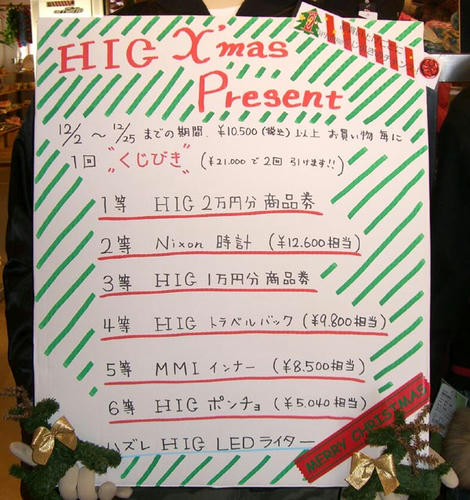 HIG X'mas
Present
12/2 〜 12/25 までの期間、¥10,500(税込)以上 お買い物 毎に
1回 "くじびき" (¥21,000で2回 引けます!!)
1等 HIG 2万円分 商品券
2等 Nixon 時計 (¥12,600相当)
3等 HIG 1万円分 商品券
4等 HIG トラベルバック (¥9,800相当)
5等 MMI インナー (¥8,500相当)
6等 HIG ポンチョ (¥5,040相当)
ハズレ HIG LEDライター
MERRY CHRISTMAS